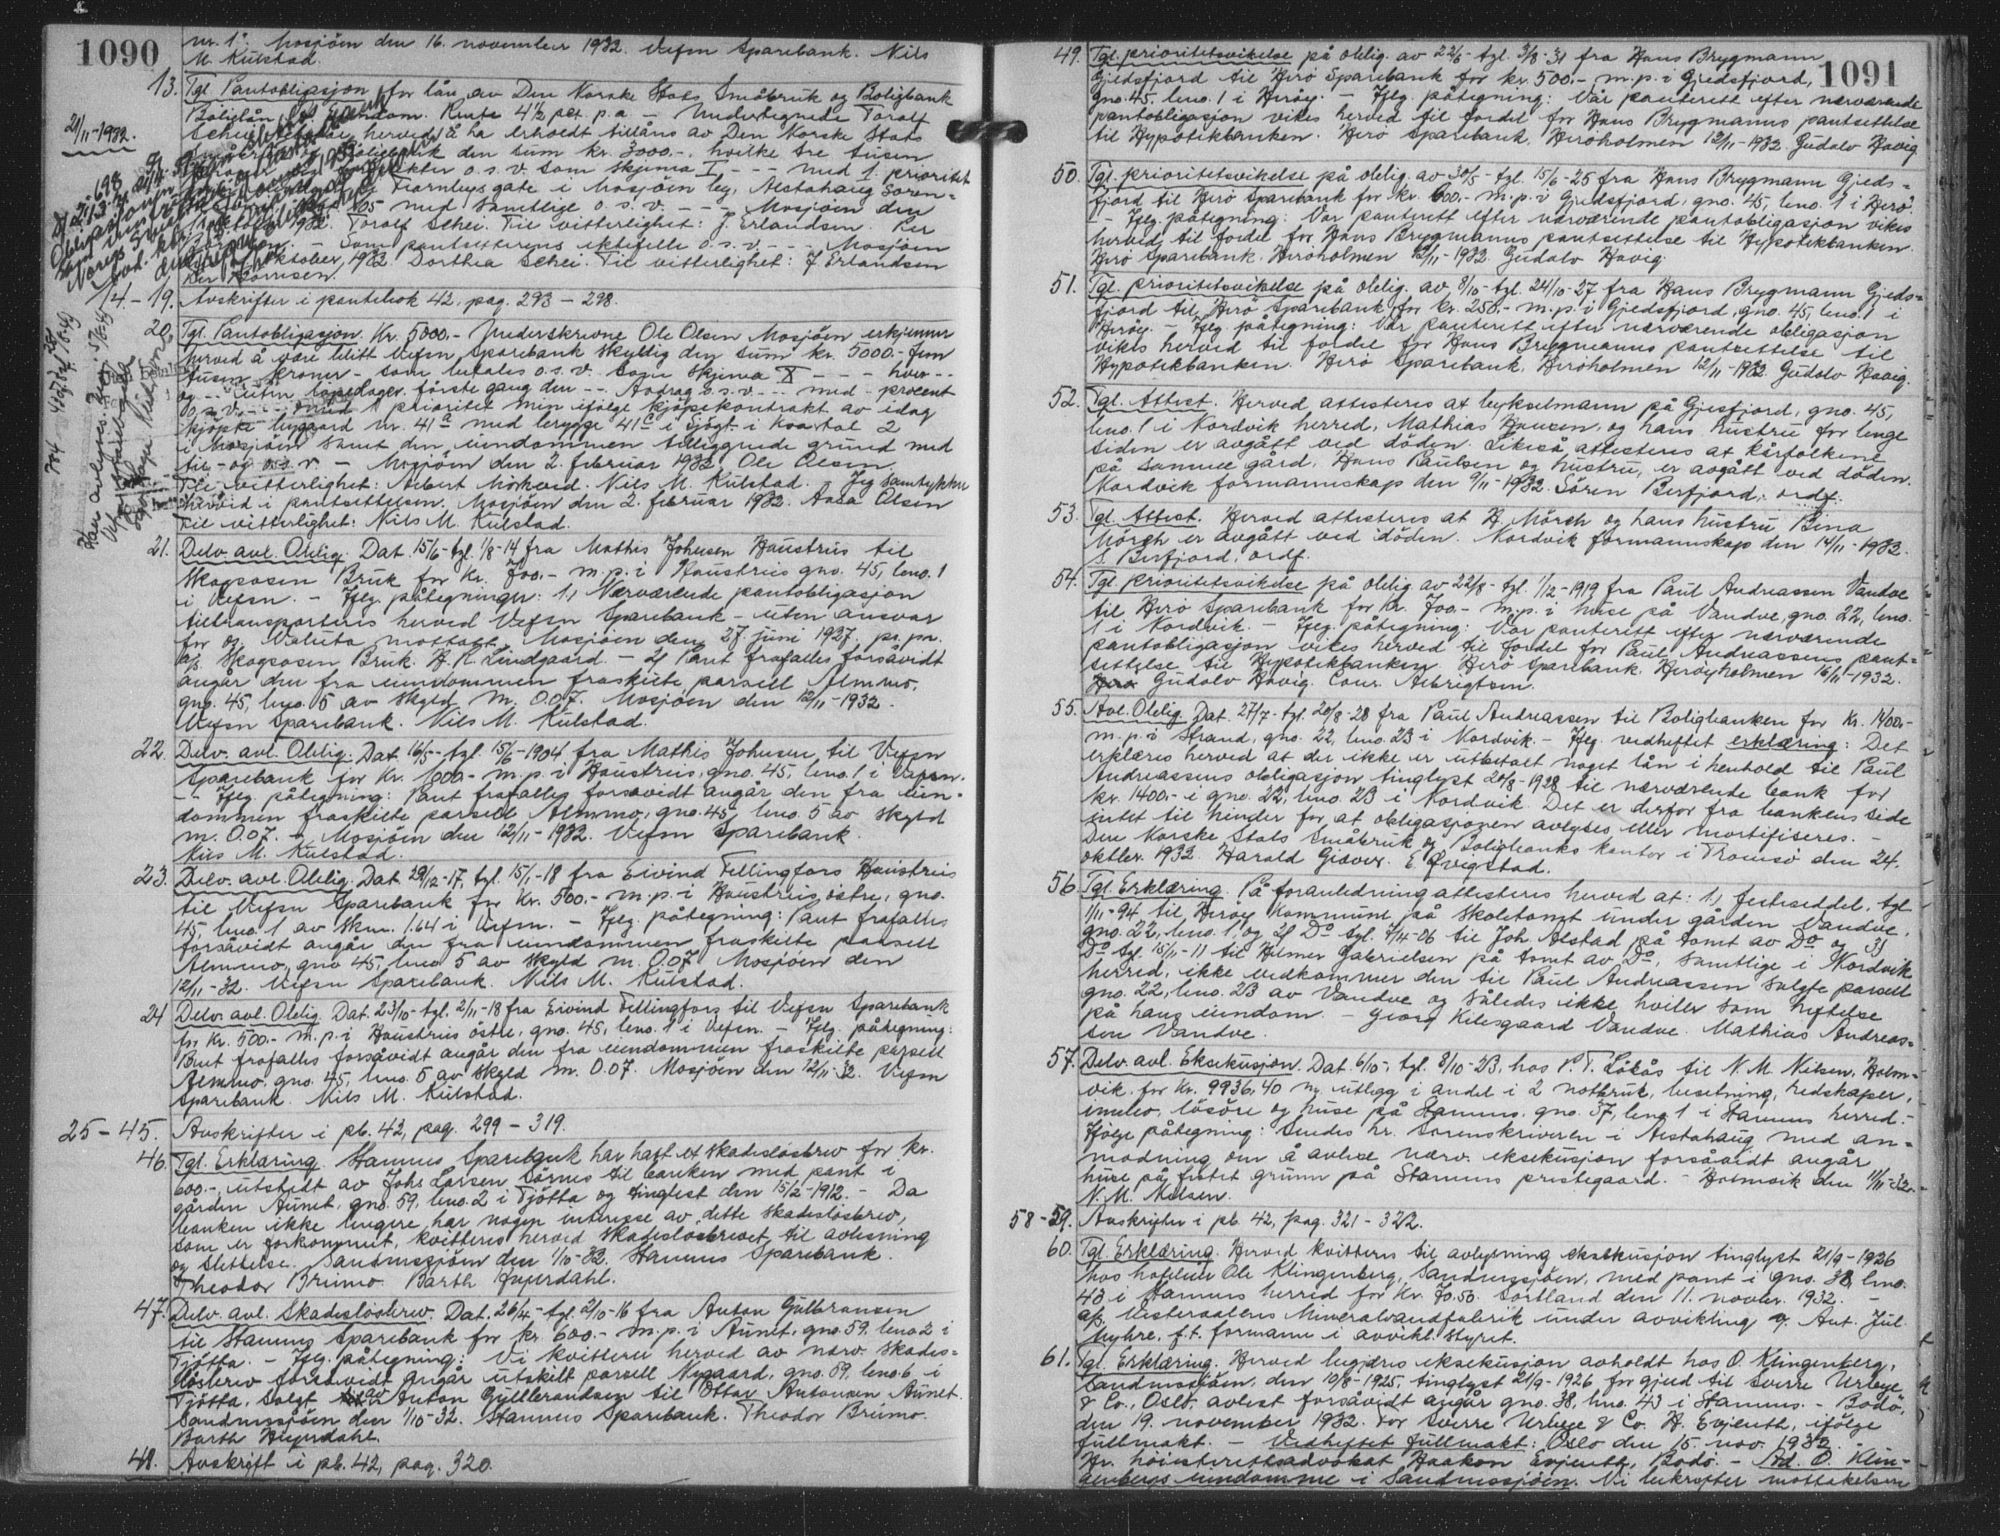 1090
nr. 1. Mosjøen den 16. november 1932. Vefsn Sparebank. Nils
M. Kulstad.
13. Tgl. Pantobligasjon for lån av Den Norske Stats Småbruk og Boligbank
21/11-1932.
Rente 4½ pct. p.a. - Undertegnede Torolf
Schei herved å ha erholdt tillåns av Den Norske Stats
den sum kr. 3000.-, hvilke tre tusen
o.s.v. som skjema I - - - med 1. prioritet
gate i Mosjøen by, Alstahaug Soren-
med samtlige o.s.v. - - - Mosjøen den
1932. Torolf Schei. Til vitterlighet: J. Erlandsen. Per
- Som pantsetterens ektefelle o.s.v. - - - Mosjøen
oktober 1932. Dorthea Schei. Til vitterlighet: J Erlandsen
14 - 19. Avskrifter i pantebok 42, pag. 293 - 298.
20. Tgl. Pantobligasjon. Kr. 5000.- Underskrevne Ole Olsen Mosjøen erkjenner
herved å være blitt Vefsn Sparebank skyldig den sum kr. 5000.- fem
tusen kroner - som betales o.s.v. som skjema X - - - hver - -
og - - uten løpedager første gang den - - . Avdrag o.s.v. - - - med - procent
o.s.v. - - - med 1 prioritet min ifølge kjøpekontrakt av idag
kjøpte bygaard nr. 41 med brygge 41 i kvartal 2
i Mosjøen samt den eiendommen tilliggende grund med
til- og o.s.v. - Mosjøen den 2. februar 1932. Ole Olsen
Til vitterlighet: Albert Mørkved. Nils M. Kulstad. Jeg samtykker
herved i pantsettelsen. Mosjøen den 2. februar 1932. Aasa Olsen
Til vitterlighet: Nils M. Kulstad.
21. Delv. avl. Oblig. Dat. 15/6- tgl. 1/8-14 fra Mathis Johnsen Haustreis til
Skogsosen Bruk for Kr. 700.- m.p. i Haustreis gno. 45, bno. 1
i Vefsn. - Iflg. påtegninger: 1) Nærværende pantobligasjon
tiltransporteres herved Vefsn Sparebank - uten ansvar
for og Valuta mottatt. Mosjøen den 27 juni 1927. pr. pr.
a/s. Skogsosen Bruk. H. R. Lindgaard - 2) Pant frafalles forsåvidt
angår den fra eiendommen fraskilte parsell Almmo,
gno. 45, bno. 5 av skyld M. 0.07. Mosjøen den 12/11-1932.
Vefsn Sparebank. Nils M. Kulstad.
22. Delv. avl. Oblig. Dat. 16/5- tgl. 15/6-1904 fra Mathis Johnsen til Vefsn
Sparebank for Kr. 600.- m.p. i Haustreis, gno. 45, bno. 1 i Vefsn.
- Iflg påtegning: Pant frafalles forsåvidt angår den fra eien-
dommen fraskilte parsell Almmo, gno. 45, bno. 5 av skyld
m. 0.07. - Mosjøen den 12/11-1932. Vefsn Sparebank.
Nils M. Kulstad.
23. Delv. avl. Oblig. Dat. 29/12-17, tgl. 15/1-18 fra Eivind Fellingfors Haustreis
til Vefsn Sparebank for Kr. 500.- m.p. i Haustreis østre, gno.
45, bno. 1 av skm. 1.64 i Vefsn. - Iflg. påtegning: Pant frafalles
forsåvidt angår den fra eiendommen fraskilte parsell
Almmo, gno 45, bno 5 av skyld m. 0.07 Mosjøen den
12/11-32. Vefsn Sparebank. Nils M. Kulstad.
24 Delv. avl. Oblig. Dat. 23/10- tgl. 2/11-18 fra Eivind Fellingfors til Vefsn Sparebank
for Kr. 500.- m.p. i Haustreis østre, gno. 45, bno. 1 i Vefsn. - Iflg. påtegning:
Pant frafalles forsåvidt angår den fra eiendommen fraskilte parsell
Almmo, gno. 45, bno. 5 av skyld m. 0.07. Mosjøen den 12/11-32. Vefsn
Sparebank. Nils M. Kulstad.
25 - 45. Avskrifter i pb. 42, pag. 299 - 319.
46. Tgl. Erklæring. Stamnes Sparebank har hatt et skadesløsbrev for kr.
600.- utstedt av Johs Larsen Sørnes til banken med pant i
gården Aunet, gno. 59, bno. 2 i Tjøtta og tinglest den 15/2-1912. - Da
banken ikke lengere har nogen interesse av dette skadesløsbrev,
som er forkommet, kvitteres herved skadesløsbrevet til avlesning
og slettelse. Sandnessjøen den 1/10-32. Stamnes Sparebank.
Theodor Brumo. Barth Hjerdahl.
47. Delv. avl. Skadesløsbrev. Dat. 26/4- tgl. 2/10-16 fra Anton Gulbransen
til Stamnes Sparebank for kr. 600.- m.p. i Aunet, gno 59. bno 2 i
Tjøtta. - Iflg. påtegning: Vi kvitterer herved av nærv. skades-
løsbrev forsåvidt angår utskilt parsell Nygaard, gno. 59, bno. 6 i
Tjøtta, solgt av Anton Gulbrandsen til Ottar Antonsen Aunet.
Sandnessjøen den 1/10-32. Stamnes Sparebank. Theodor Brumo.
Barth Hjerdahl.
48. Avskrift i pb. 42, pag. 320.
1091
49. Tgl. prioritetsvikelse på oblig. av 22/6- tgl. 3/8-31 fra Hans Brygmann
Gjedsfjord til Herø Sparebank for kr. 500.- m.p. i Gjedsfjord,
gno. 45, bno. 1 i Herøy. - Iflg påtegning: Vår panterett efter nærværende
pantobligasjon vikes herved til fordel for Hans Brygmanns pantsettelse
til Hypotekbanken. Herø Sparebank, Herøholmen 12/11-1932. Gudolv Havig
50. Tgl. prioritetsvikelse på oblig. av 30/5- tgl. 15/6-25 fra Hans Brygmann Gjeds-
fjord til Herø Sparebank for kr. 600.- m.p. i Gjedsfjord, gno. 45, bno. 1 i Herø.
- Iflg. påtegning: Vår panterett efter nærværende pantobligasjon vikes
herved til fordel for Hans Brygmanns pantsettelse til Hypotekbanken.
Herø Sparebank. Herøholmen 12/11-1932. Gudolv Havig.
51. Tgl. prioritetsvikelse på oblig. av 8/10- tgl. 24/10-27 fra Hans Brygmann Gjeds-
fjord til Herø Sparebank for kr. 250.- m.p. i Gjedsfjord, gno. 45, bno. 1 i
Herøy. - Iflg. påtegning: Vår panterett efter nærværende obligasjon
vikes herved til fordel for Hans Brygmanns pantsettelse til
Hypotekbanken. Herø Sparebank, Herøholmen 12/11-1932 Gudolv Havig.
52. Tgl. Attest. Herved attesteres at bykselmann på Gjesfjord, gno. 45,
bno. 1 i Nordvik herred, Mathias Hansen, og hans hustru for lenge
siden er avgått ved døden. Likeså attesteres at kårfolkene
på samme gård, Hans Paulsen og hustru, er avgått ved døden.
Nordvik formannskap den 9/11-1932. Søren Berfjord, ordf.
53. Tgl. Attest. Herved attesteres at H. Mørch og hans hustru Bina
Mørch er avgått ved døden. Nordvik formannskap den 14/11-1932.
S. Berfjord, ordf.
54. Tgl. prioritetsvikelse på oblig av 22/8- tgl. 1/12-1919 fra Paul Andreassen Vandve
til Herø Sparebank for Kr. 700.- m.p. i huse på Vandve, gno. 22, bno.
1 i Nordvik. - Iflg. påtegning: Vår panterett efter nærværende
pantobligasjon vikes herved til fordel for Paul Andreassens pant-
settelse til Hypotekbanken. Herø Sparebank. Herøyholmen 15/11-1932.
Gudolv Havig. Conr. Albrigtsen.
55. Avl. Oblig. Dat. 27/7- tgl. 20/8-28 fra Paul Andreassen til Boligbanken for Kr. 1400.-
m.p. i Strand, gno. 22, bno. 23 i Nordvik. - Iflg. vedheftet erklæring: Det
erklæres herved at der ikke er utbetalt noget lån i henhold til Paul
Andreassens obligasjon tinglyst 20/8-1928 til nærværende bank for
kr. 1400.- i gno. 22, bno. 23 i Nordvik. Det er derfor fra bankens side
intet til hinder for at obligasjonen avlyses eller mortifiseres. -
Den Norske Stats Småbruk og Boligbanks kontor i Tromsø den 24.
oktbr. 1932. Harald Giæver. E Qvigstad.
56. Tgl. Erklæring. På foranledning attesteres herved at: 1) festeseddel, tgl.
1/11-94, til Herøy Kommune på skoletomt under gården Vandve,
gno. 22, bno. 1, og 2) Do tgl. 7/14-06 til Joh. Alstad på tomt av Do og 3)
Do tgl. 15/11-11 til Hilmer Gabrielsen på tomt av Do, samtlige i Nordvik
herred, ikke vedkommer den til Paul Andreassen solgte parsell
gno. 22, bno. 23 av Vandve og således ikke hviler som heftelse
på hans eiendom. - Georg Kilesgaard Vandve. Mathias Andreas-
sen Vandve.
57. Delv. avl. Eksekusjon. Dat. 6/10-, tgl. 8/10-23, hos P. T. Løkås til N. M. Nilsen, Holm-
vik. for Kr. 9936,40 m. utlegg i andel i 2 notbruk, besetning, redskaper,
innbo, løsøre og huse på Stamnes. gno. 37, bno 1 i Stamnes herred. -
Ifølge påtegning: Sendes hr. Sorenskriveren i Alstahaug med an-
modning om å avlese nærv. eksekusjon forsåvidt angår
huse på festet grunn på Stamnes prestegaard. - Holmvik den 11/11-32.
N. M. Nilsen.
58 - 59. Avskrifter i pb. 42, pag. 321 - 322.
60. Tgl. Erklæring. Herved kvitteres til avlysning eksekusjon tinglyst 21/9-1926
hos hoteleier Ole Klingenberg, Sandnessjøen, med pant i gno. 38, bno.
43 i Stamnes herred for Kr. 70.50. Sortland den 11. novbr. 1932. -
a/s Vesteraalens Mineralvandfabrik under avvikling q. Ant. Jul.
Myhre, f.t. formann i avvikl.styret.
61. Tgl. Erklæring. Herved begjæres eksekusjon avholdt hos O. Klingenberg,
Sandnessjøen, den 10/8-1925, tinglyst 21/9-1926 for gjeld til Sverre Urbye
& Co., Oslo, avlest forsåvidt angår gno. 38, bno. 43 i Stamnes. - Bodø,
den 19. november 1932. For Sverre Urbye & Co. H. Evjenth, ifølge
fullmakt. - Vedheftet fullmakt: Oslo den 15. nov. 1932.
Hr. høiesterettsadvokat Haakon Evjenth, Bodø. - Ad. O. Klin-
genbergs eiendomme i Sandnessjøen. Vi bekrefter mottakelsen